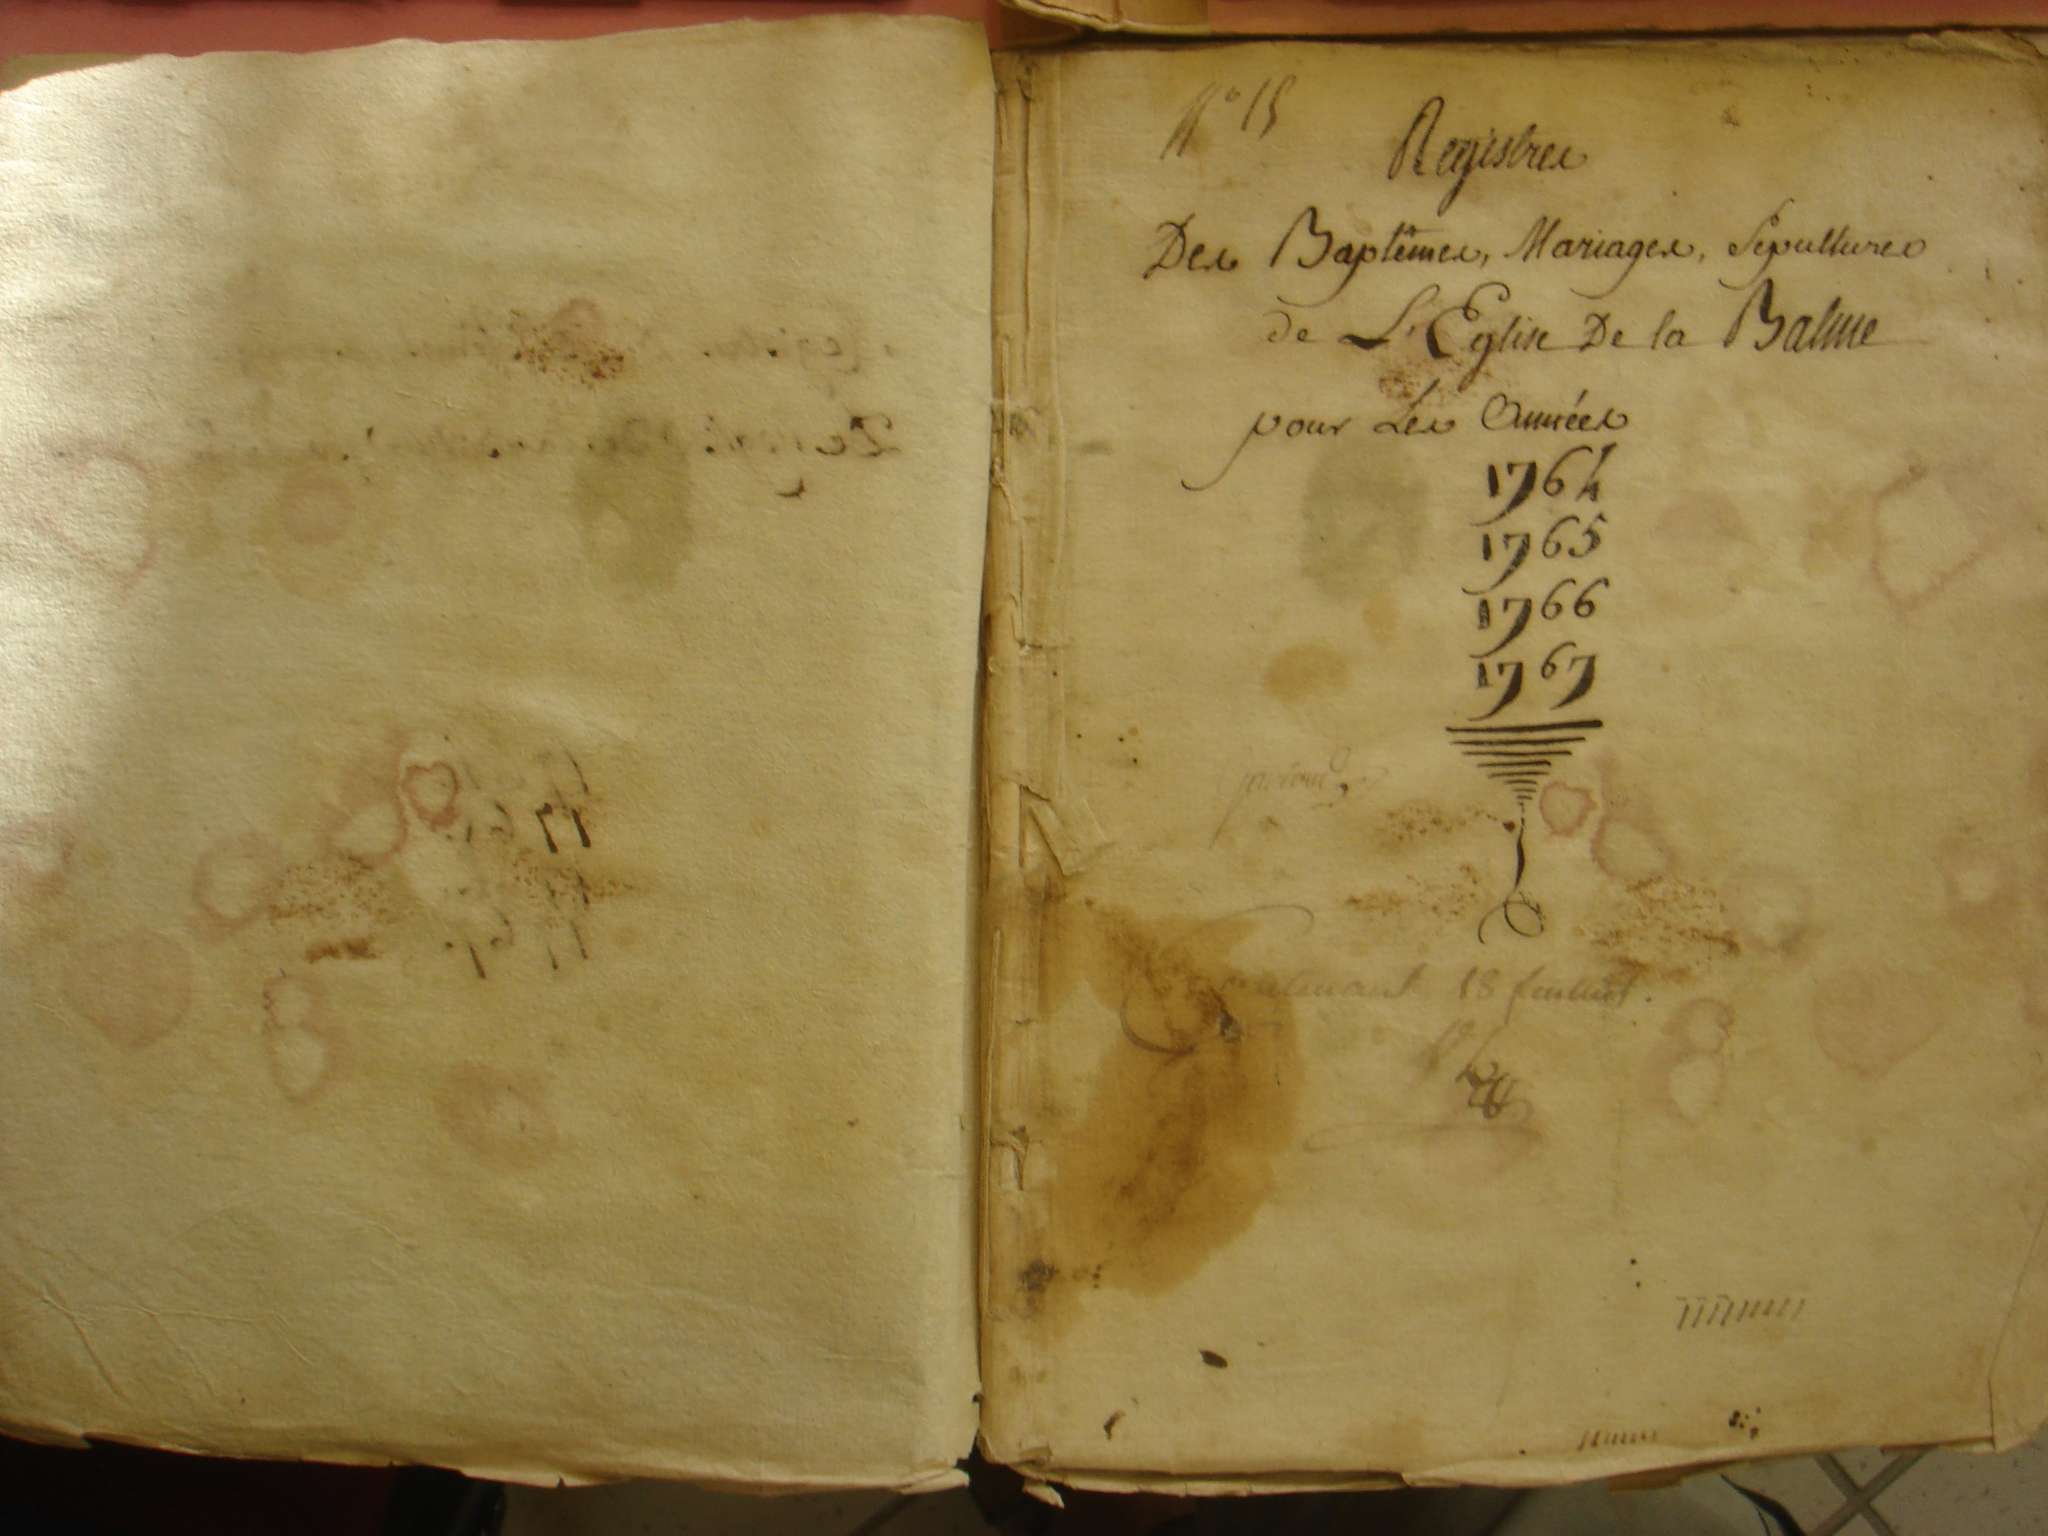 N° 15
Registres
Des Baptêmes, Mariages, Sepultures
de L'Eglise De la Balme
pour Les Années
1764
1765
1766
1767
18 feuillets.